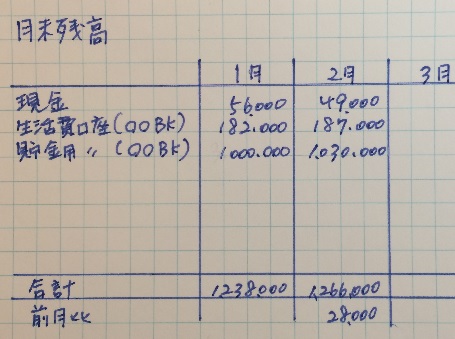 月末残高
1月 2月 3月
現金 56.000 49.000
生活費口座(〇〇BK) 182.000 187.000
貯金用 〃 (〇〇BK) 1000.000 1.030.000
合計 1238.000 1,266,000
前月比 28.000